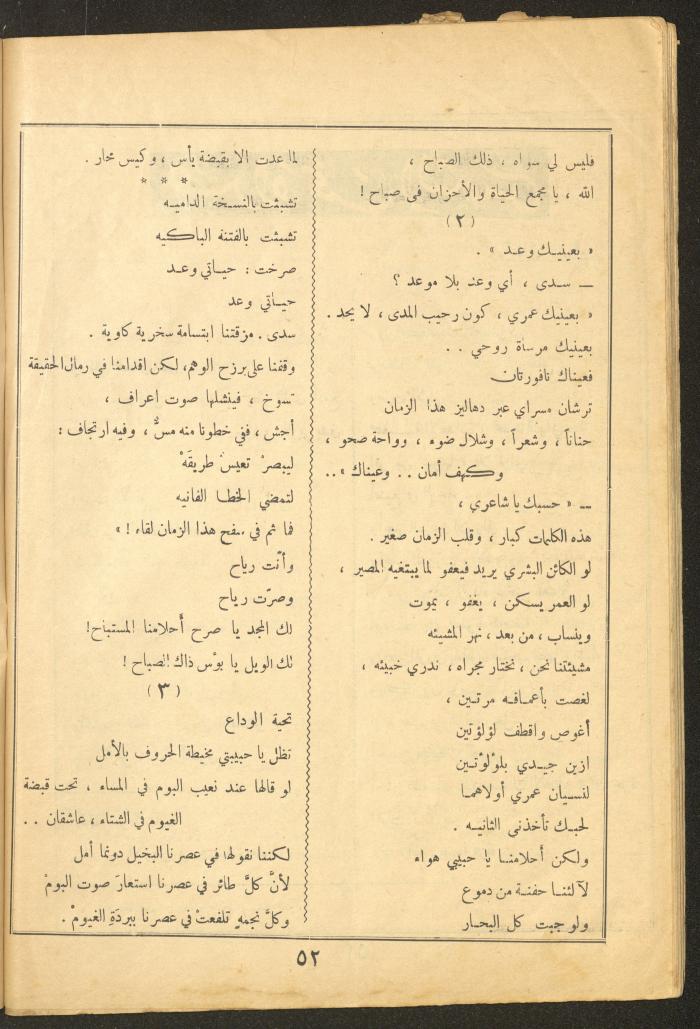 فليس لي سواه ، ذلك الصباح ،
الله ، يا مجمع الحياة والأحزان فى صباح !
( ٢ )
« بعينيـك وعـد » .
— سـدى ، أي وعد بلا موعد ؟
« بعينيك عمري ، كون رحيب المدى ، لا يحد .
بعينيك مرساة روحي . .
فعيناك نافورتان
ترشان مسراي عبر دهاليز هذا الزمان
حناناً ، وشعراً ، وشلال ضوء ، وواحة صحو ،
وكهف أمان . . وعيناك » ..
— « حسبك يا شاعري ،
هذه الكلمات كبار ، وقلب الزمان صغير .
لو الكائن البشري يريد فيعفو لما يبتغيه المصير ،
لو العمر يسكن ، يغفو ، يموت
وينساب ، من بعد ، نهر المشيئه
مشيئتنا نحن ، نختار مجراه ، ندري خبيئه ،
لغصت بأعمـاقـه مرتـين ،
أغوص واقطف لؤلؤتين
ازين جيـدي بلؤلؤتـين
لنسـيان عمري أولاهمـا
لحبـك تأخذني الثانيـه .
ولكن أحلامنـا يا حبيبي هواء
لآلئنـا حفنـة من دموع
ولو جبت كل البحـار
لما عدت الا بقبضة يأس ، وكيس محار .
* * *
تشبثت بالنسـخة الداميـه
تشبثت بالفتنة الباكيـه
صرخت : حيـاتي وعـد
حيـاتي وعد
سدى . مزقتنا ابتسامة سخرية كاوية .
وقفنا على برزخ الوهم، لكن اقدامنا في رمال الحقيقة
تسوخ ، فينشلها صوت اعراف ،
أجش ، ففي خطونا منه مسٌّ ، وفيه ارتجاف :
ليبصرْ تعيسٌ طريقَهْ
لتمضي الخطـا الفانيه
فما ثم في سفح هذا الزمان لقاء ! »
وأنّت رياح
وصرّت رياح
لك المجد يا صرح أحلامنا المستباح !
لك الويل يا بؤس ذاك الصباح !
( ٣ )
تحية الوداع
تظل يا حبيبتي مخيطة الحروف بالأمل
لو قالها عند نعيب البوم في المساء ، تحت قبضة
الغيوم في الشتاء ، عاشقان . .
لكننا نقولها في عصرنا البخيل دونما أمل
لأنَّ كلَّ طائر في عصرنا استعارَ صوت البومْ
وكلَّ نجمهٍ تلفعتْ في عصرنا ببردَةِ الغيومْ .
٥٢